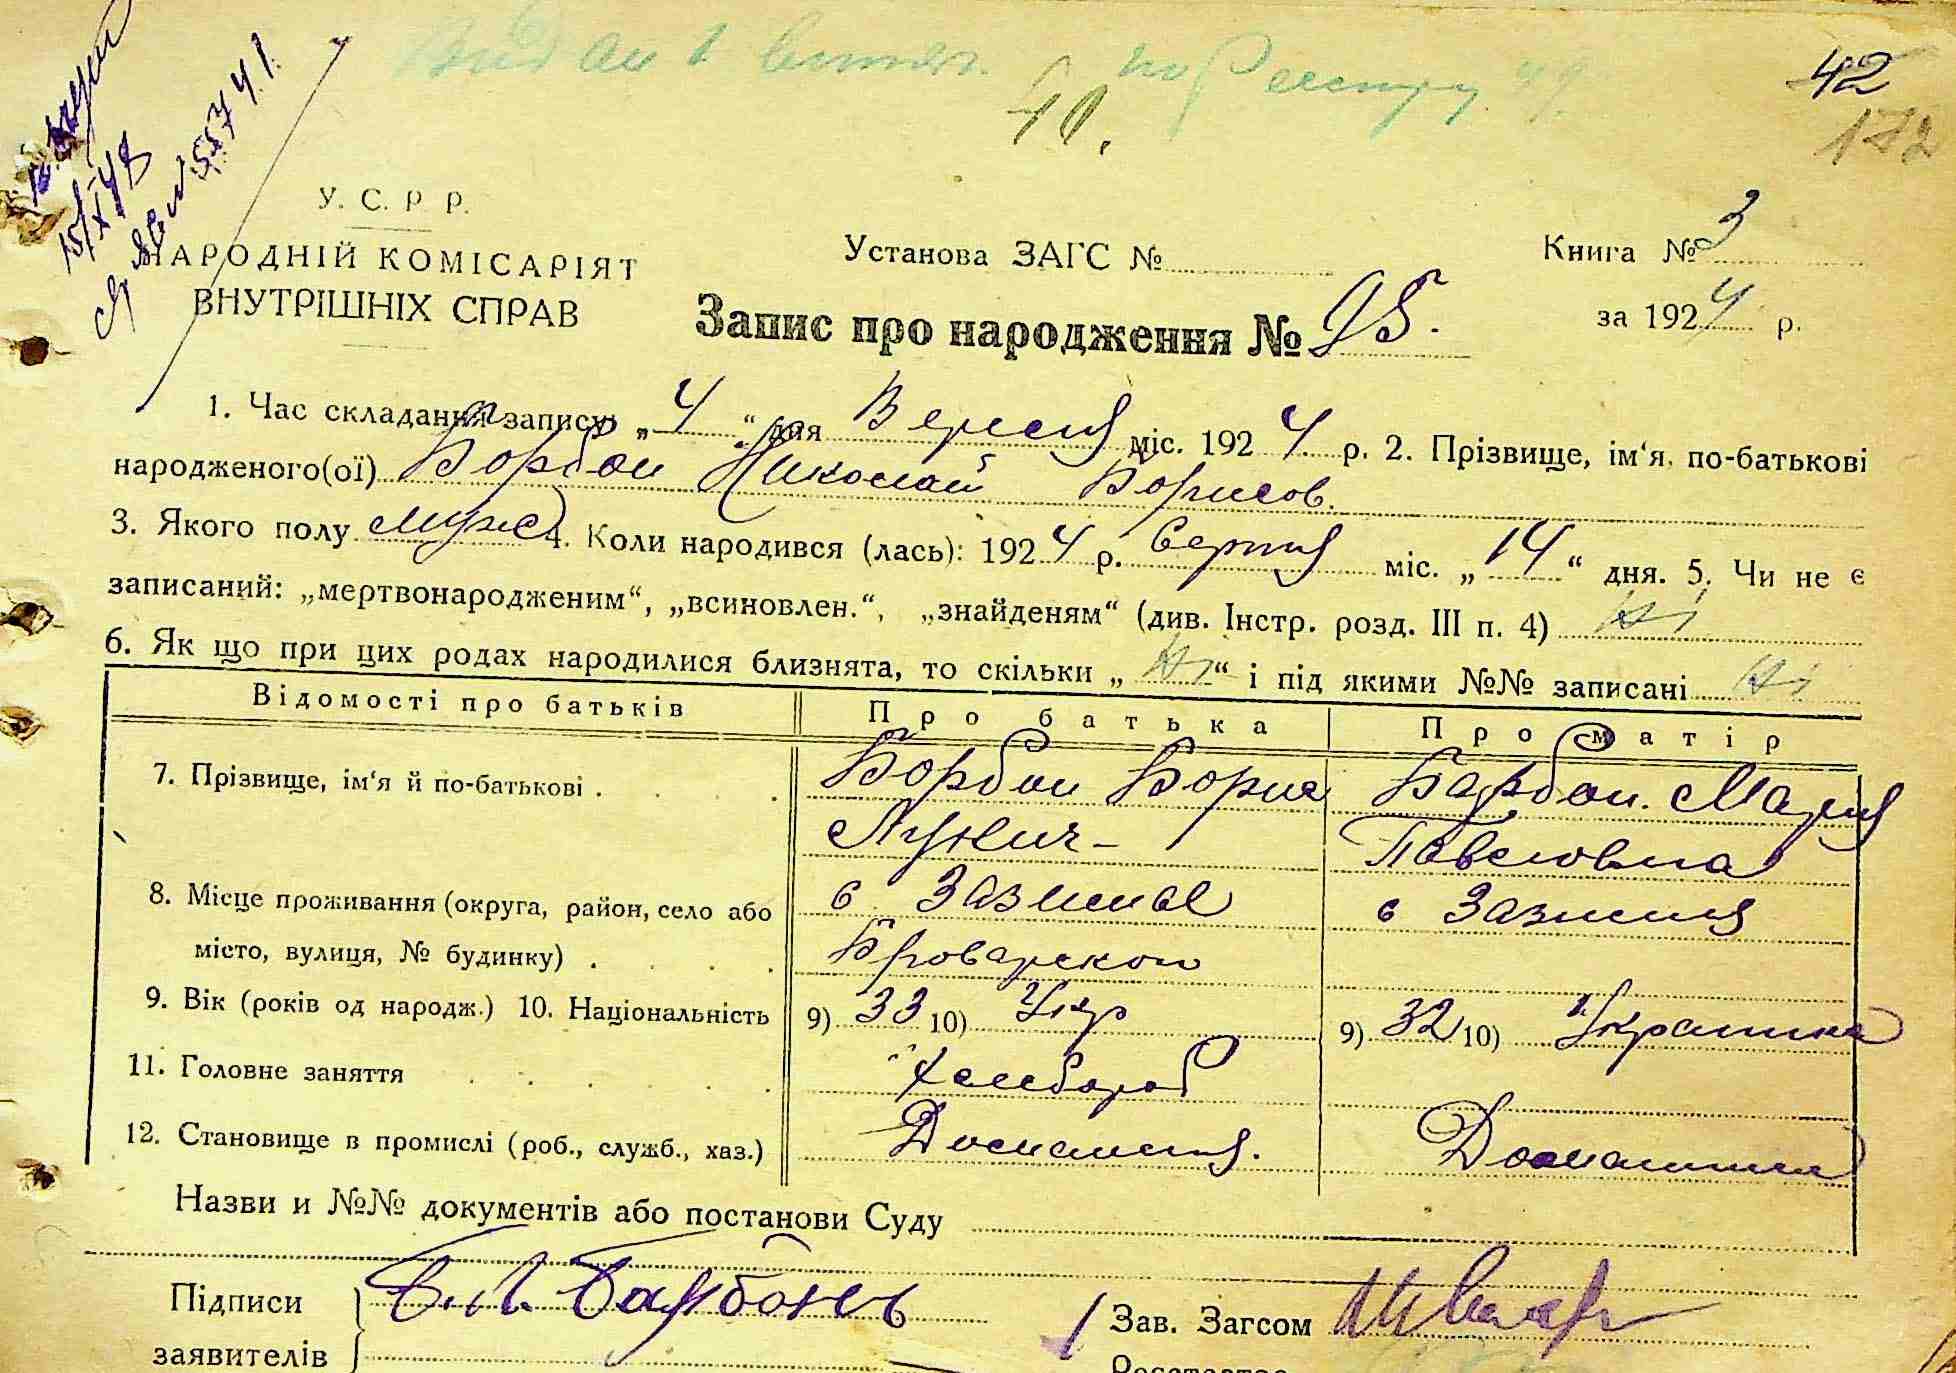 42
41.
У. С. Р. Р.
НАРОДНІЙ КОМІСАРІЯТ
ВНУТРІШНІХ СПРАВ
Установа ЗАГС №
Книга № 3
за 1924 р.
Запис про народження № 95.
1. Час складання запису „4“ дня Вересня міс. 1924 р. 2. Прізвище, ім‘я, по-батькові
народженого(ої) Борбон Николай Борисов.
3. Якого полу муж 4. Коли народився (лась): 1924 р. Серпня міс. „14“ дня. 5. Чи не є
записаний: „мертвонародженим“, „всиновлен.“, „знайденям“ (див. Інстр. розд. III п. 4) Ні
6. Як що при цих родах народилися близнята, то скільки „Ні“ і під якими №№ записані Ні
Відомості про батьків Про батька Про матір
7. Прізвище, ім‘я й по-батькові . Борбон Борис Барбон. Мария
Лукич- Павловна
8. Місце проживання (округа, район, село або с Зазимье с Зазимя
місто, вулиця, № будинку) . Броварского
9. Вік (років од народж.) 10. Національність 9) 33 10) Укр 9) 32 10) Українка
11. Головне заняття Хлебороб
12. Становище в промислі (роб., служб., хаз.)
Назви и №№ документів або постанови Суду
Підписи Б. Л. Барбонь Зав. Загсом
заявителів